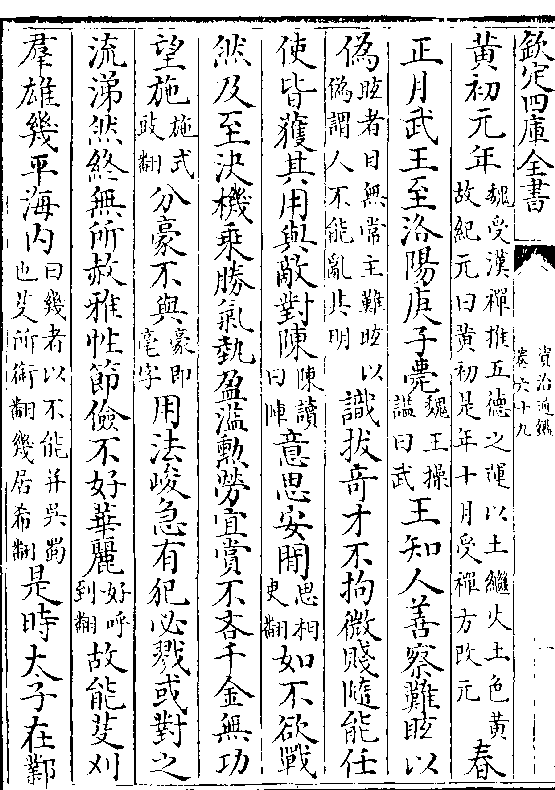 欽定四庫全書
資治通鑑
卷六十九
一
黄初元年魏受漢禪推五德之運以土繼火土色黄故紀元曰黄初是年十月受禪方改元春
正月武王至洛陽庚子薨魏王操諡曰武王知人善察難眩以
偽眩者目無常主難眩以偽謂人不能亂其明識拔奇才不拘微賤隨能任
使皆獲其用與敵對陳陳讀曰陣意思安閒思相吏翻如不欲戰
然及至決機乘勝氣埶盈溢勲勞宜賞不吝千金無功
望施施式豉翻分豪不與豪即毫字用法峻急有犯必戮或對之
流涕然終無所赦雅性節儉不好華麗好呼到翻故能芟刈
羣雄幾平海内曰幾者以不能并吳蜀也芟所銜翻幾居希翻是時太子在鄴